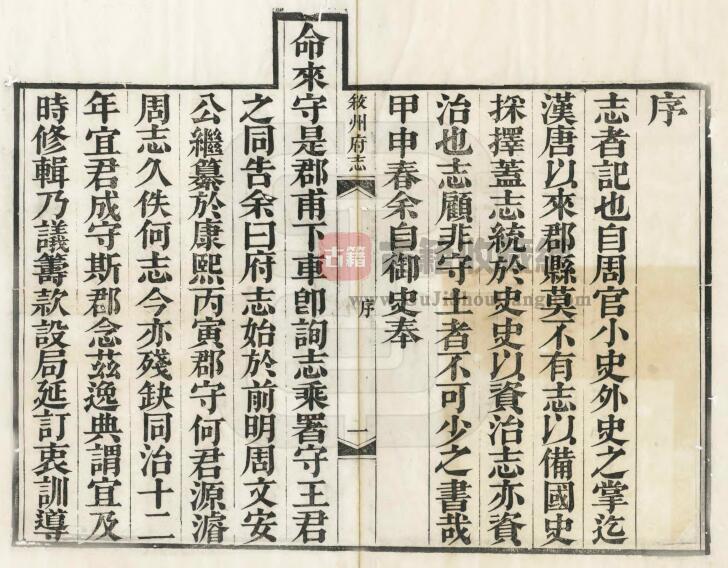 序
志者記也自周官小史外史之掌迄
漢唐以來郡縣莫不有志以備國史
採擇蓋志統於史史以資治志亦資
治也志顧非守土者不可少之書哉
甲申春余自御史奉
敘州府志
序
一
命來守是郡甫下車卽詢志乘署守王君
之同告余曰府志始於前明周文安
公繼纂於康熙丙寅郡守何君源濬
周志久佚何志今亦殘缺同治十二
年宜君成守斯郡念茲逸典謂宜及
時修輯乃議籌款設局延訂衷訓導
古籍
www.GuJiShouCang.com